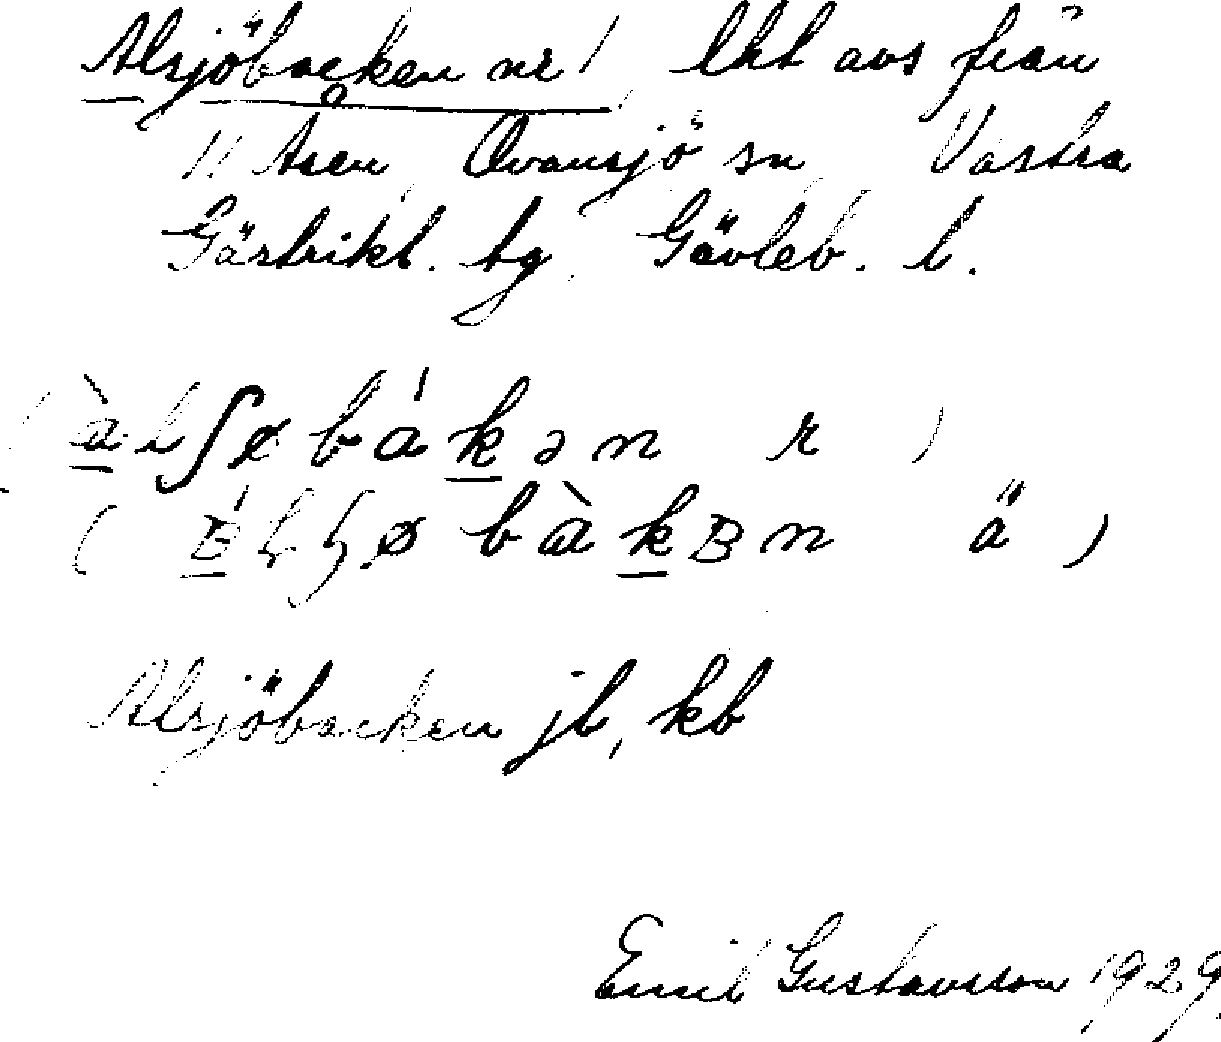 Alsjöbacken nr 1 lht avs från
11 Åsen Ovansjö sn Västra
Gästrikl. tg. Gävleb. l.
(àlʃøbákən r)
(bàkʙn ä)
Alsjöbacken jb, kb
Emil Gustavsson 1929